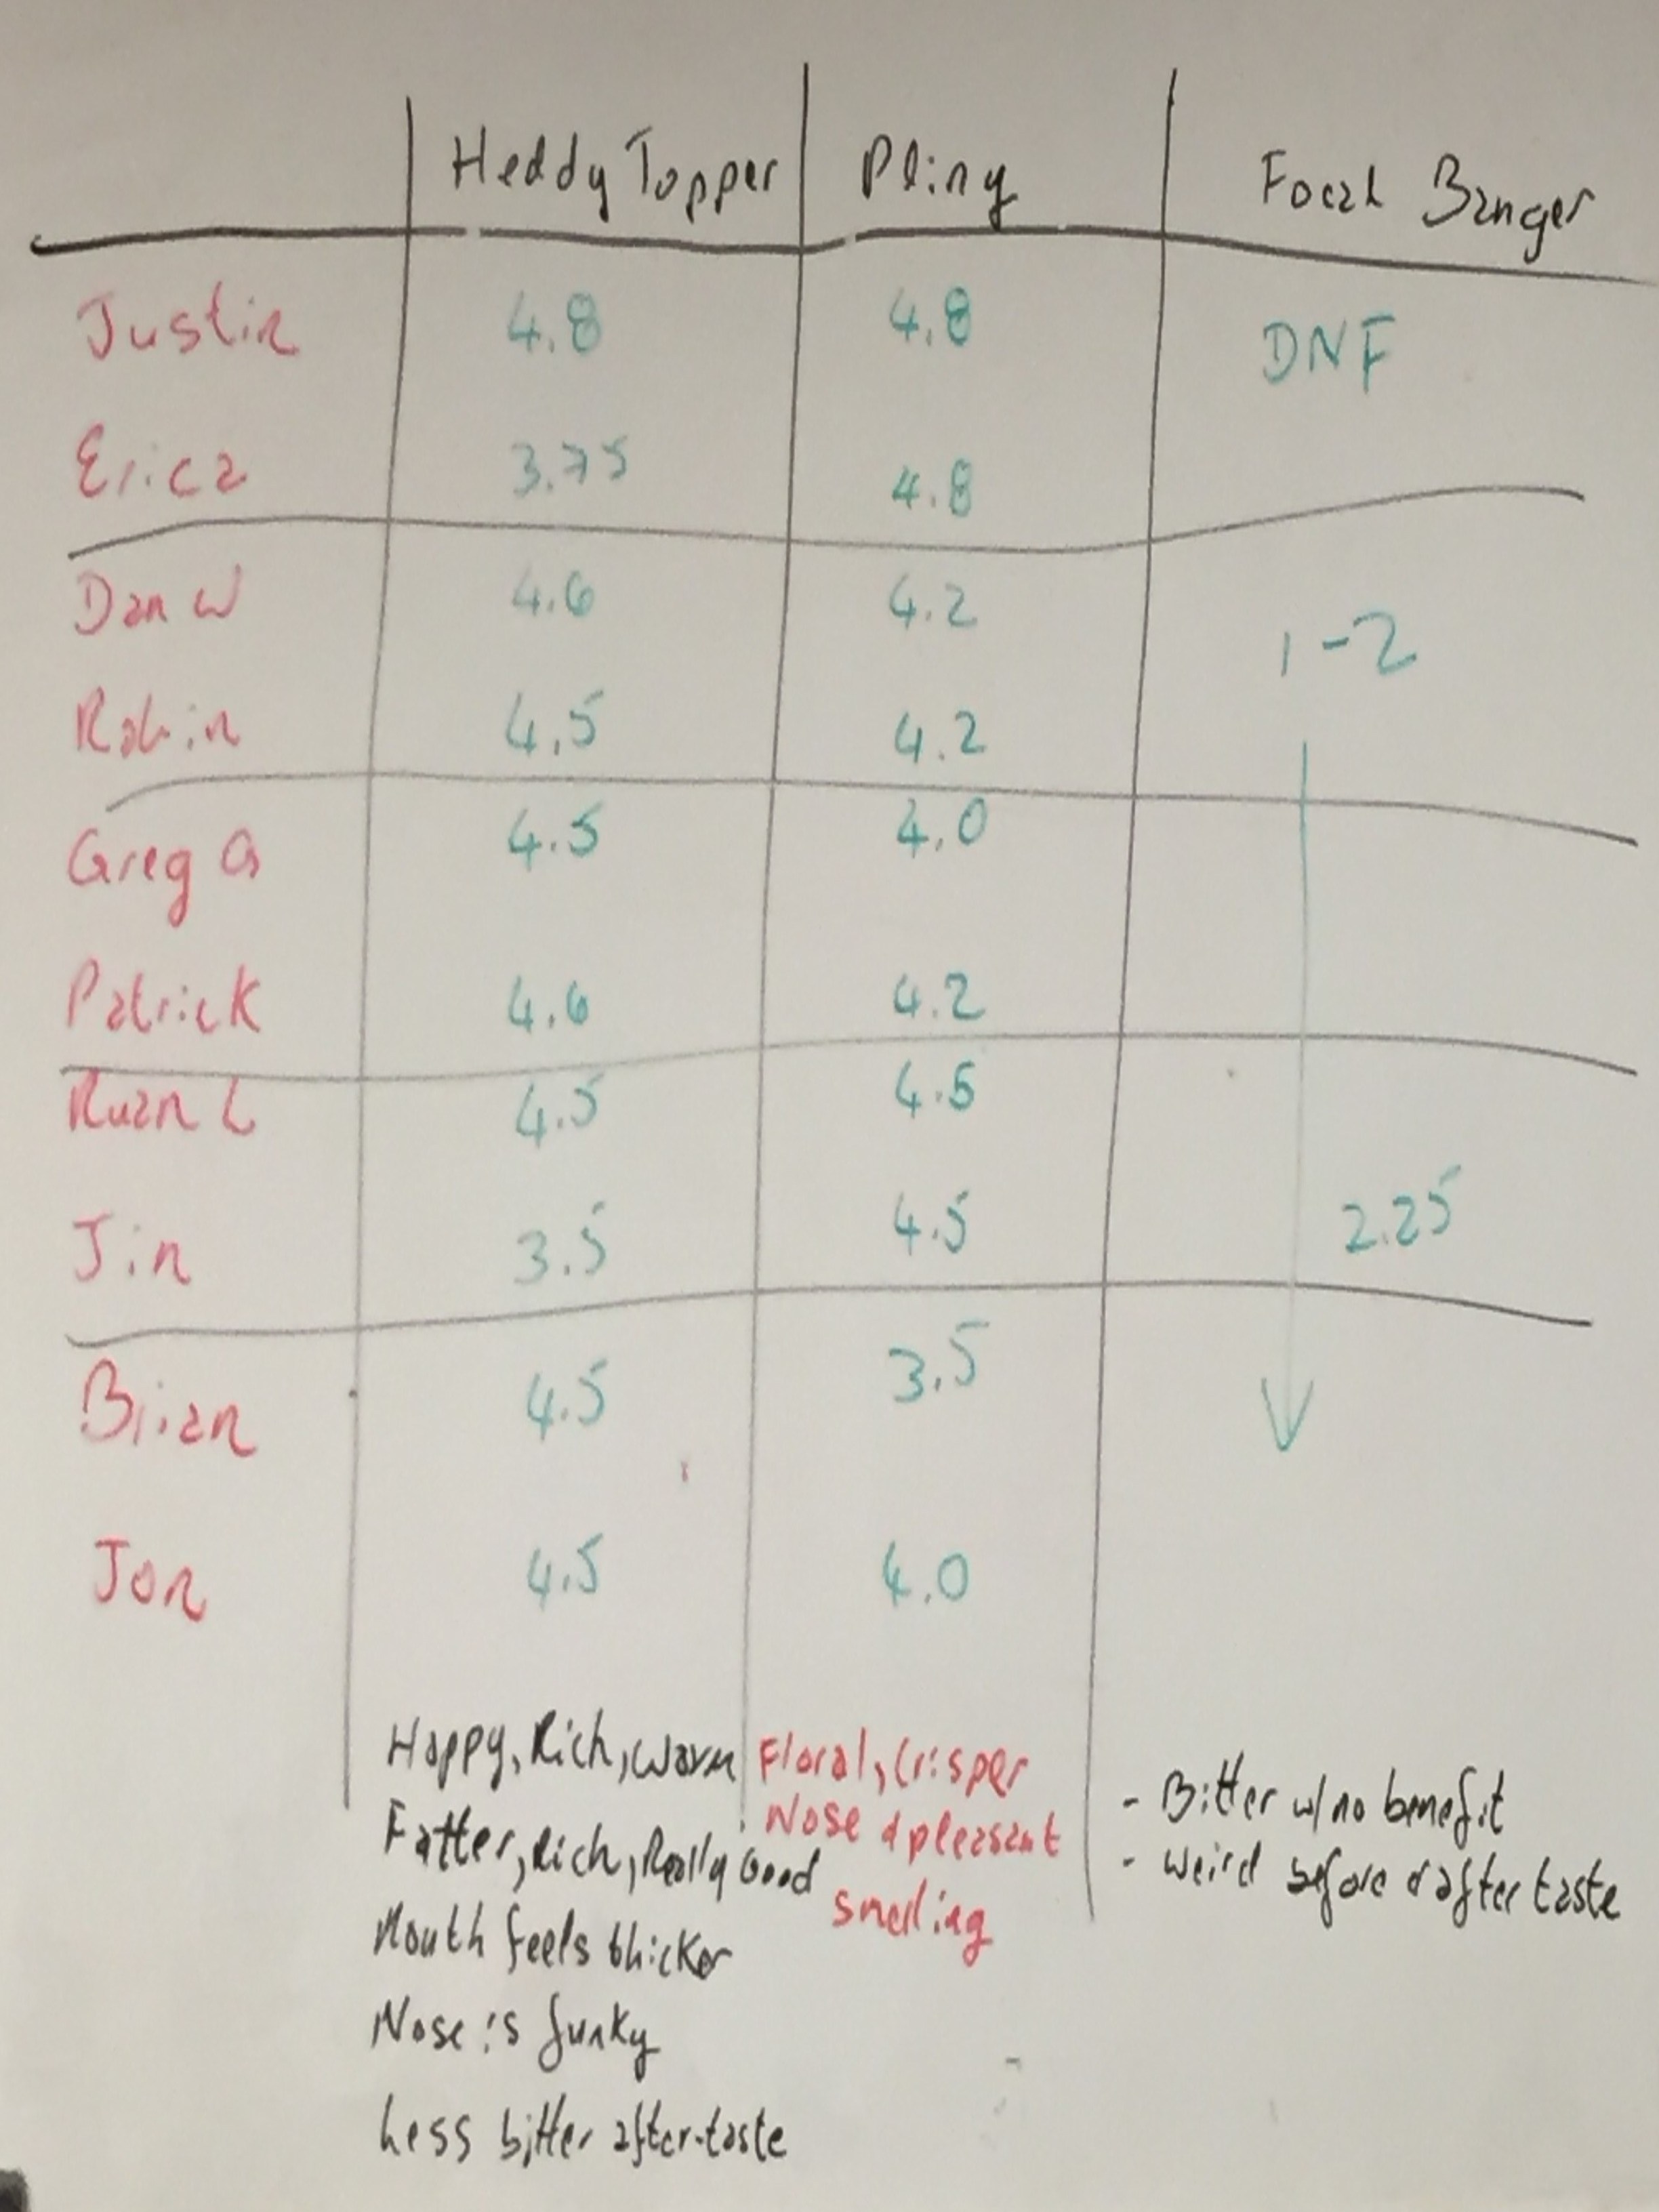 Heddy Topper Pliny Focal Banger
Justin 4.8 4.8 DNF
Erica 3.75 4.8
Dan W 4.6 4.2 1-2
Robin 4.5 4.2
Greg G 4.5 4.0
Patrick 4.6 4.2
Ruan L 4.5 4.5
Jin 3.5 4.5 2.25
Brian 4.5 3.5
Jon 4.5 4.0
Hoppy, Rich, Warm
Fatter, Rich, Really Good
Mouth feels thicker
Nose is funky
Less bitter after-taste
Floral, Crisper
Nose & pleasant
smelling
- Bitter w/no benefit
- Weird before & after taste